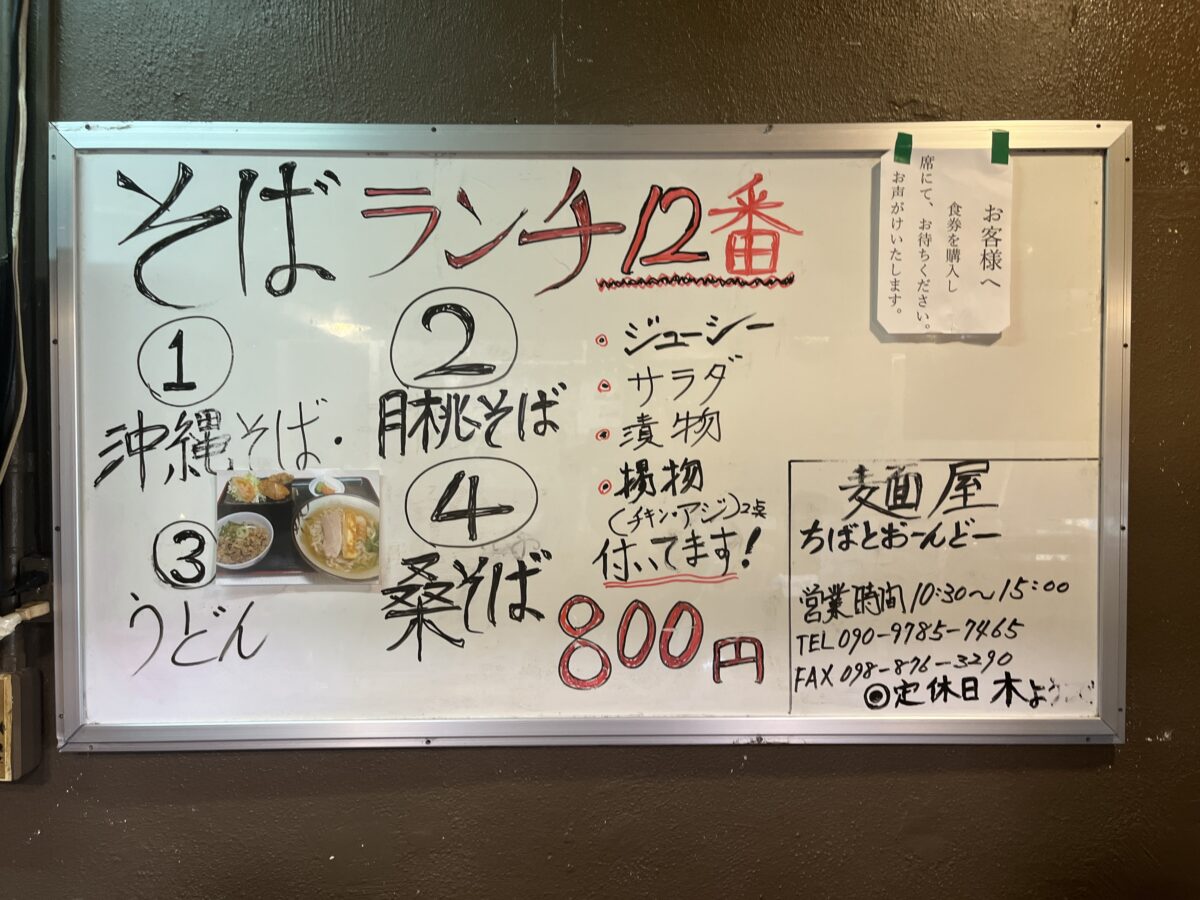 そばランチ12番
①
沖縄そば・
②
月桃そば
③
うどん
④
桑そば
・ジューシー
・サラダ
・漬物
・揚物
(チキン・アジ)2点
付いてます!
800円
お客様へ
食券を購入し
席にて、お待ちください。
お声がけいたします。
麺屋
ちばとおーんどー
営業時間10:30~15:00
TEL 090-9785-7465
FAX 098-876-3290
◎定休日 木よう